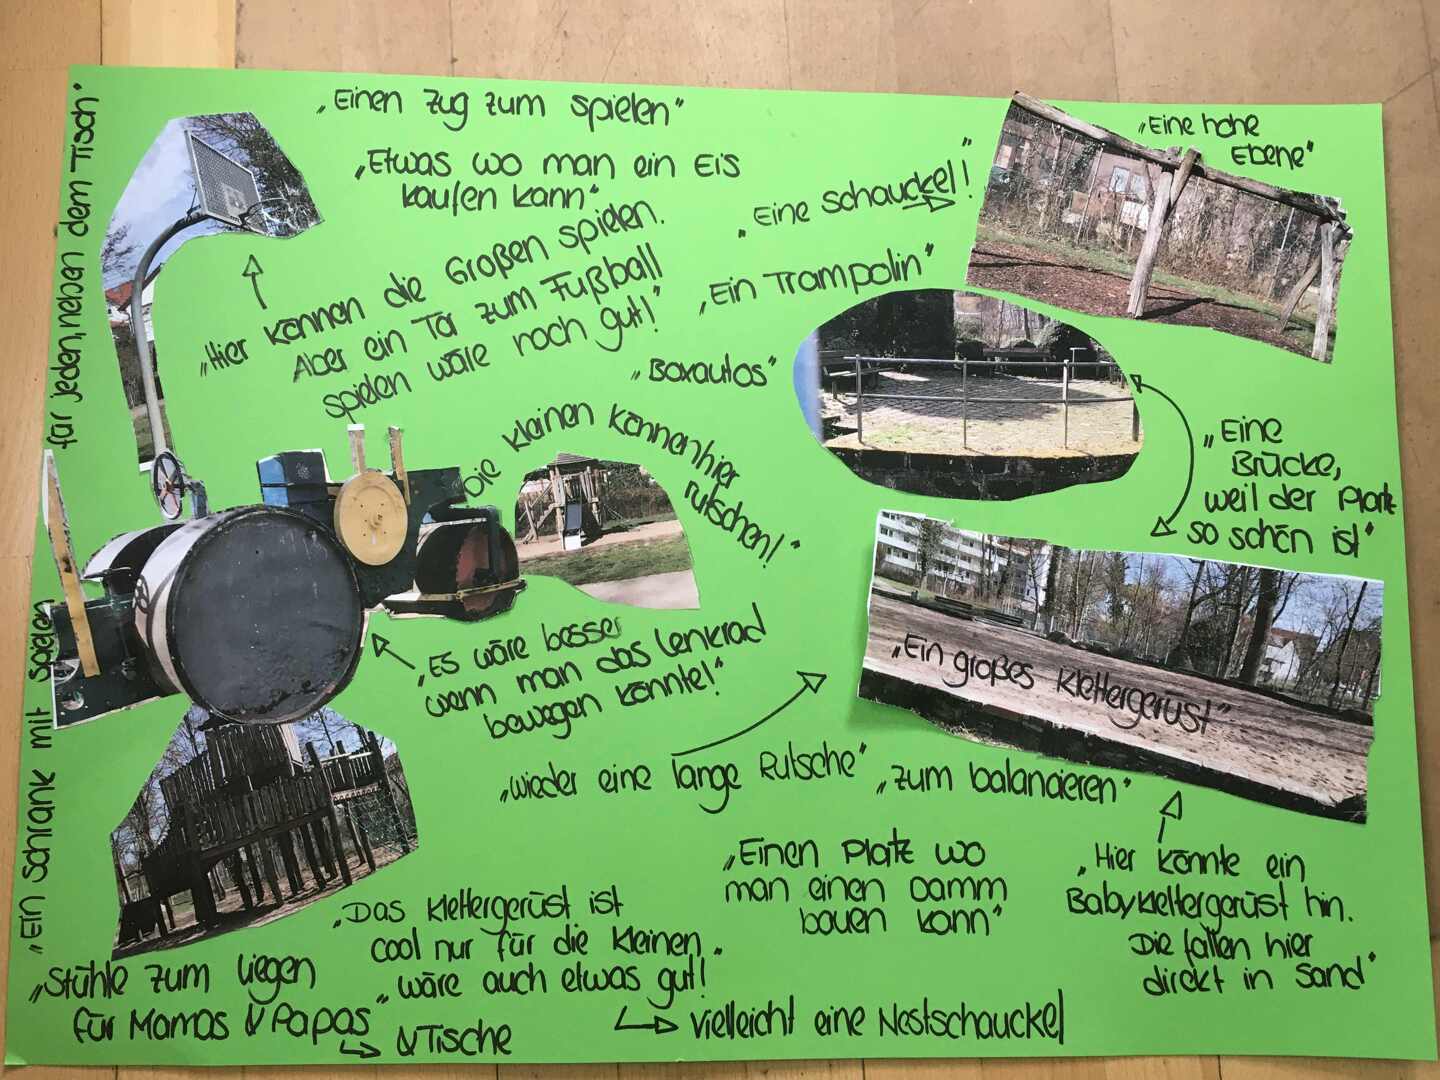 „Einen Zug zum spielen"
„Etwas wo man ein Eis
kaufen kann"
„Eine Schauckel!"
„Eine hohe
Ebene"
„Hier können die Großen spielen.
Aber ein Tor zum Fußball
spielen wäre noch gut!"
„Ein Trampolin"
„Boxautos"
„Die kleinen können hier
rutschen!"
„Eine
Brücke,
weil der Platz
so schön ist"
„Es wäre besser
wenn man das Lenkrad
bewegen könnte!"
„Ein großes Klettergerüst"
„wieder eine lange Rutsche"
„zum balancieren"
„Einen Platz wo
man einen Damm
bauen kann"
„Hier könnte ein
Babyklettergerüst hin.
Die fallen hier
direkt in Sand"
„Das Klettergerüst ist
cool nur für die kleinen
wäre auch etwas gut!"
vielleicht eine Nestschauckel
„Stühle zum liegen
für Mamas & Papas"
& Tische
„Ein Schrank mit Spielen
für jeden, neben dem Tisch"